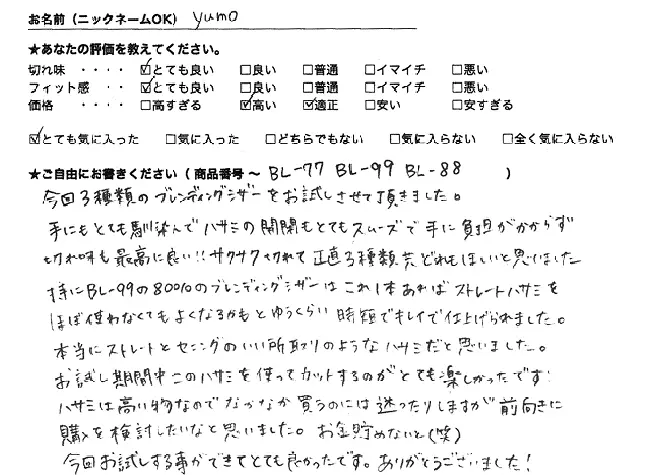 お名前（ニックネームOK） yumo
★あなたの評価を教えてください。
切れ味 ・・・・ ☑とても良い □良い □普通 □イマイチ □悪い
フィット感 ・・・・ ☑とても良い □良い □普通 □イマイチ □悪い
価格 ・・・・ □高すぎる ☑高い ☑適正 □安い □安すぎる
☑とても気に入った □気に入った □どちらでもない □気に入らない □全く気に入らない
★ご自由にお書きください（ 商品番号 ～ BL-77 BL-99 BL-88 ）
今回3種類のブレンディングシザーをお試しさせて頂きました。
手にもとても馴染んでハサミの開閉もとてもスムーズで手に負担がかからず
切れ味も最高に良い!!サクサク切れて正直3種類共どれもほしいと思いました
特にBL-99の80%のブレンディングシザーはこれ1本あればストレートハサミを
ほぼ使わなくてもよくなるかもとゆうくらい 時短でキレイで仕上げられました。
本当にストレートとセニングのいい所取りのようなハサミだと思いました。
お試し期間中このハサミを使ってカットするのがとても楽しかったです!
ハサミは高い物なのでなかなか買うのには迷ったりしますが前向きに
購入を検討したいなと思いました。お金貯めないと(笑)
今回お試しする事ができてとても良かったです。ありがとうございました!